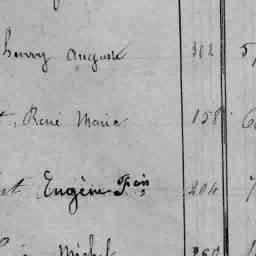 henry Auguste 302 5
t, René Marie 158 6
et Eugène Fois 204 7
Michel 250